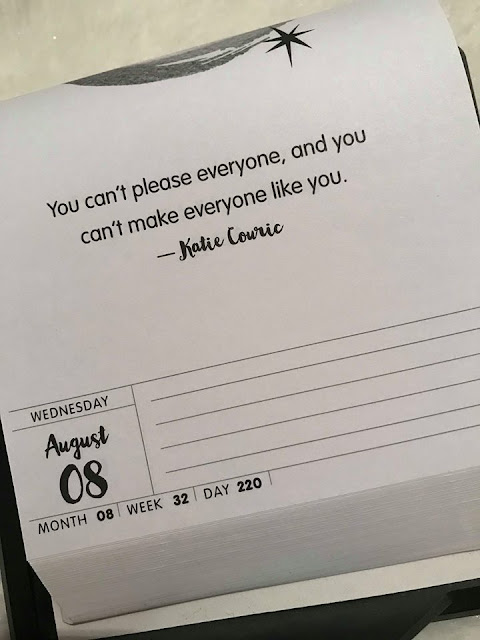 You can't please everyone, and you
can't make everyone like you.
— Katie Couric
WEDNESDAY
August
08
MONTH 08 WEEK 32 DAY 220